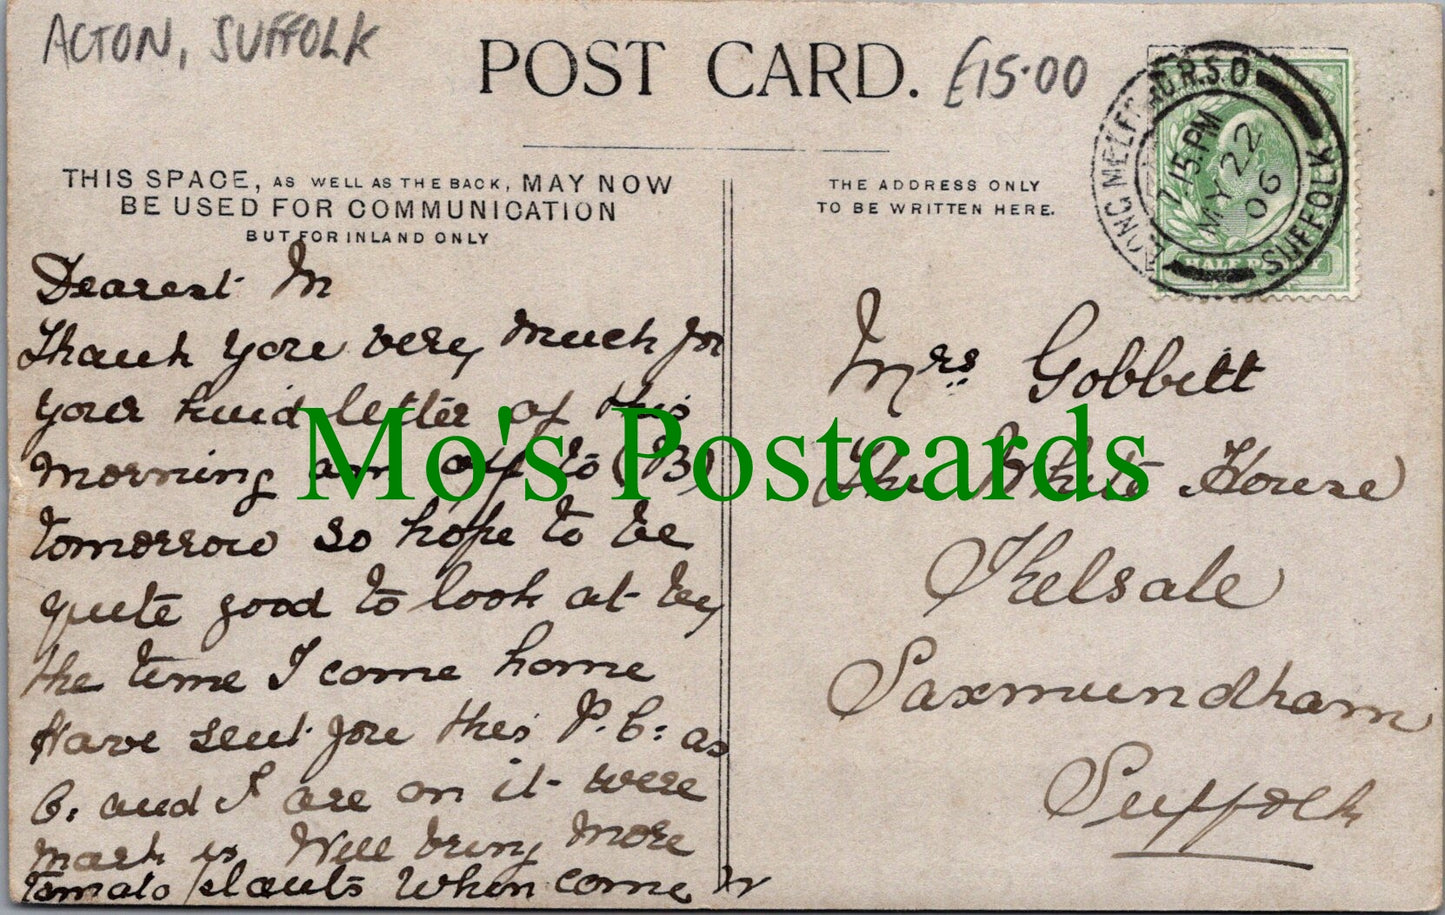 ACTON, SUFFOLK
POST CARD.
£15.00
THIS SPACE, AS WELL AS THE BACK, MAY NOW
BE USED FOR COMMUNICATION
BUT FOR INLAND ONLY
THE ADDRESS ONLY
TO BE WRITTEN HERE.
LONG MELFORD.R.S.O
7.15.PM
MY 22
06
SUFFOLK
HALF PENNY
Dearest M
Thank you very much for
your kind letter of this
morning am off to (B)
tomorrow so hope to be
quite good to look at by
the time I come home
Have sent you this P.C: as
C. and I are on it were
mark is Will bring more
tomato plants when come
Mrs Gobbett
The White House
Kelsale
Saxmundham
Suffolk
Mo's Postcards